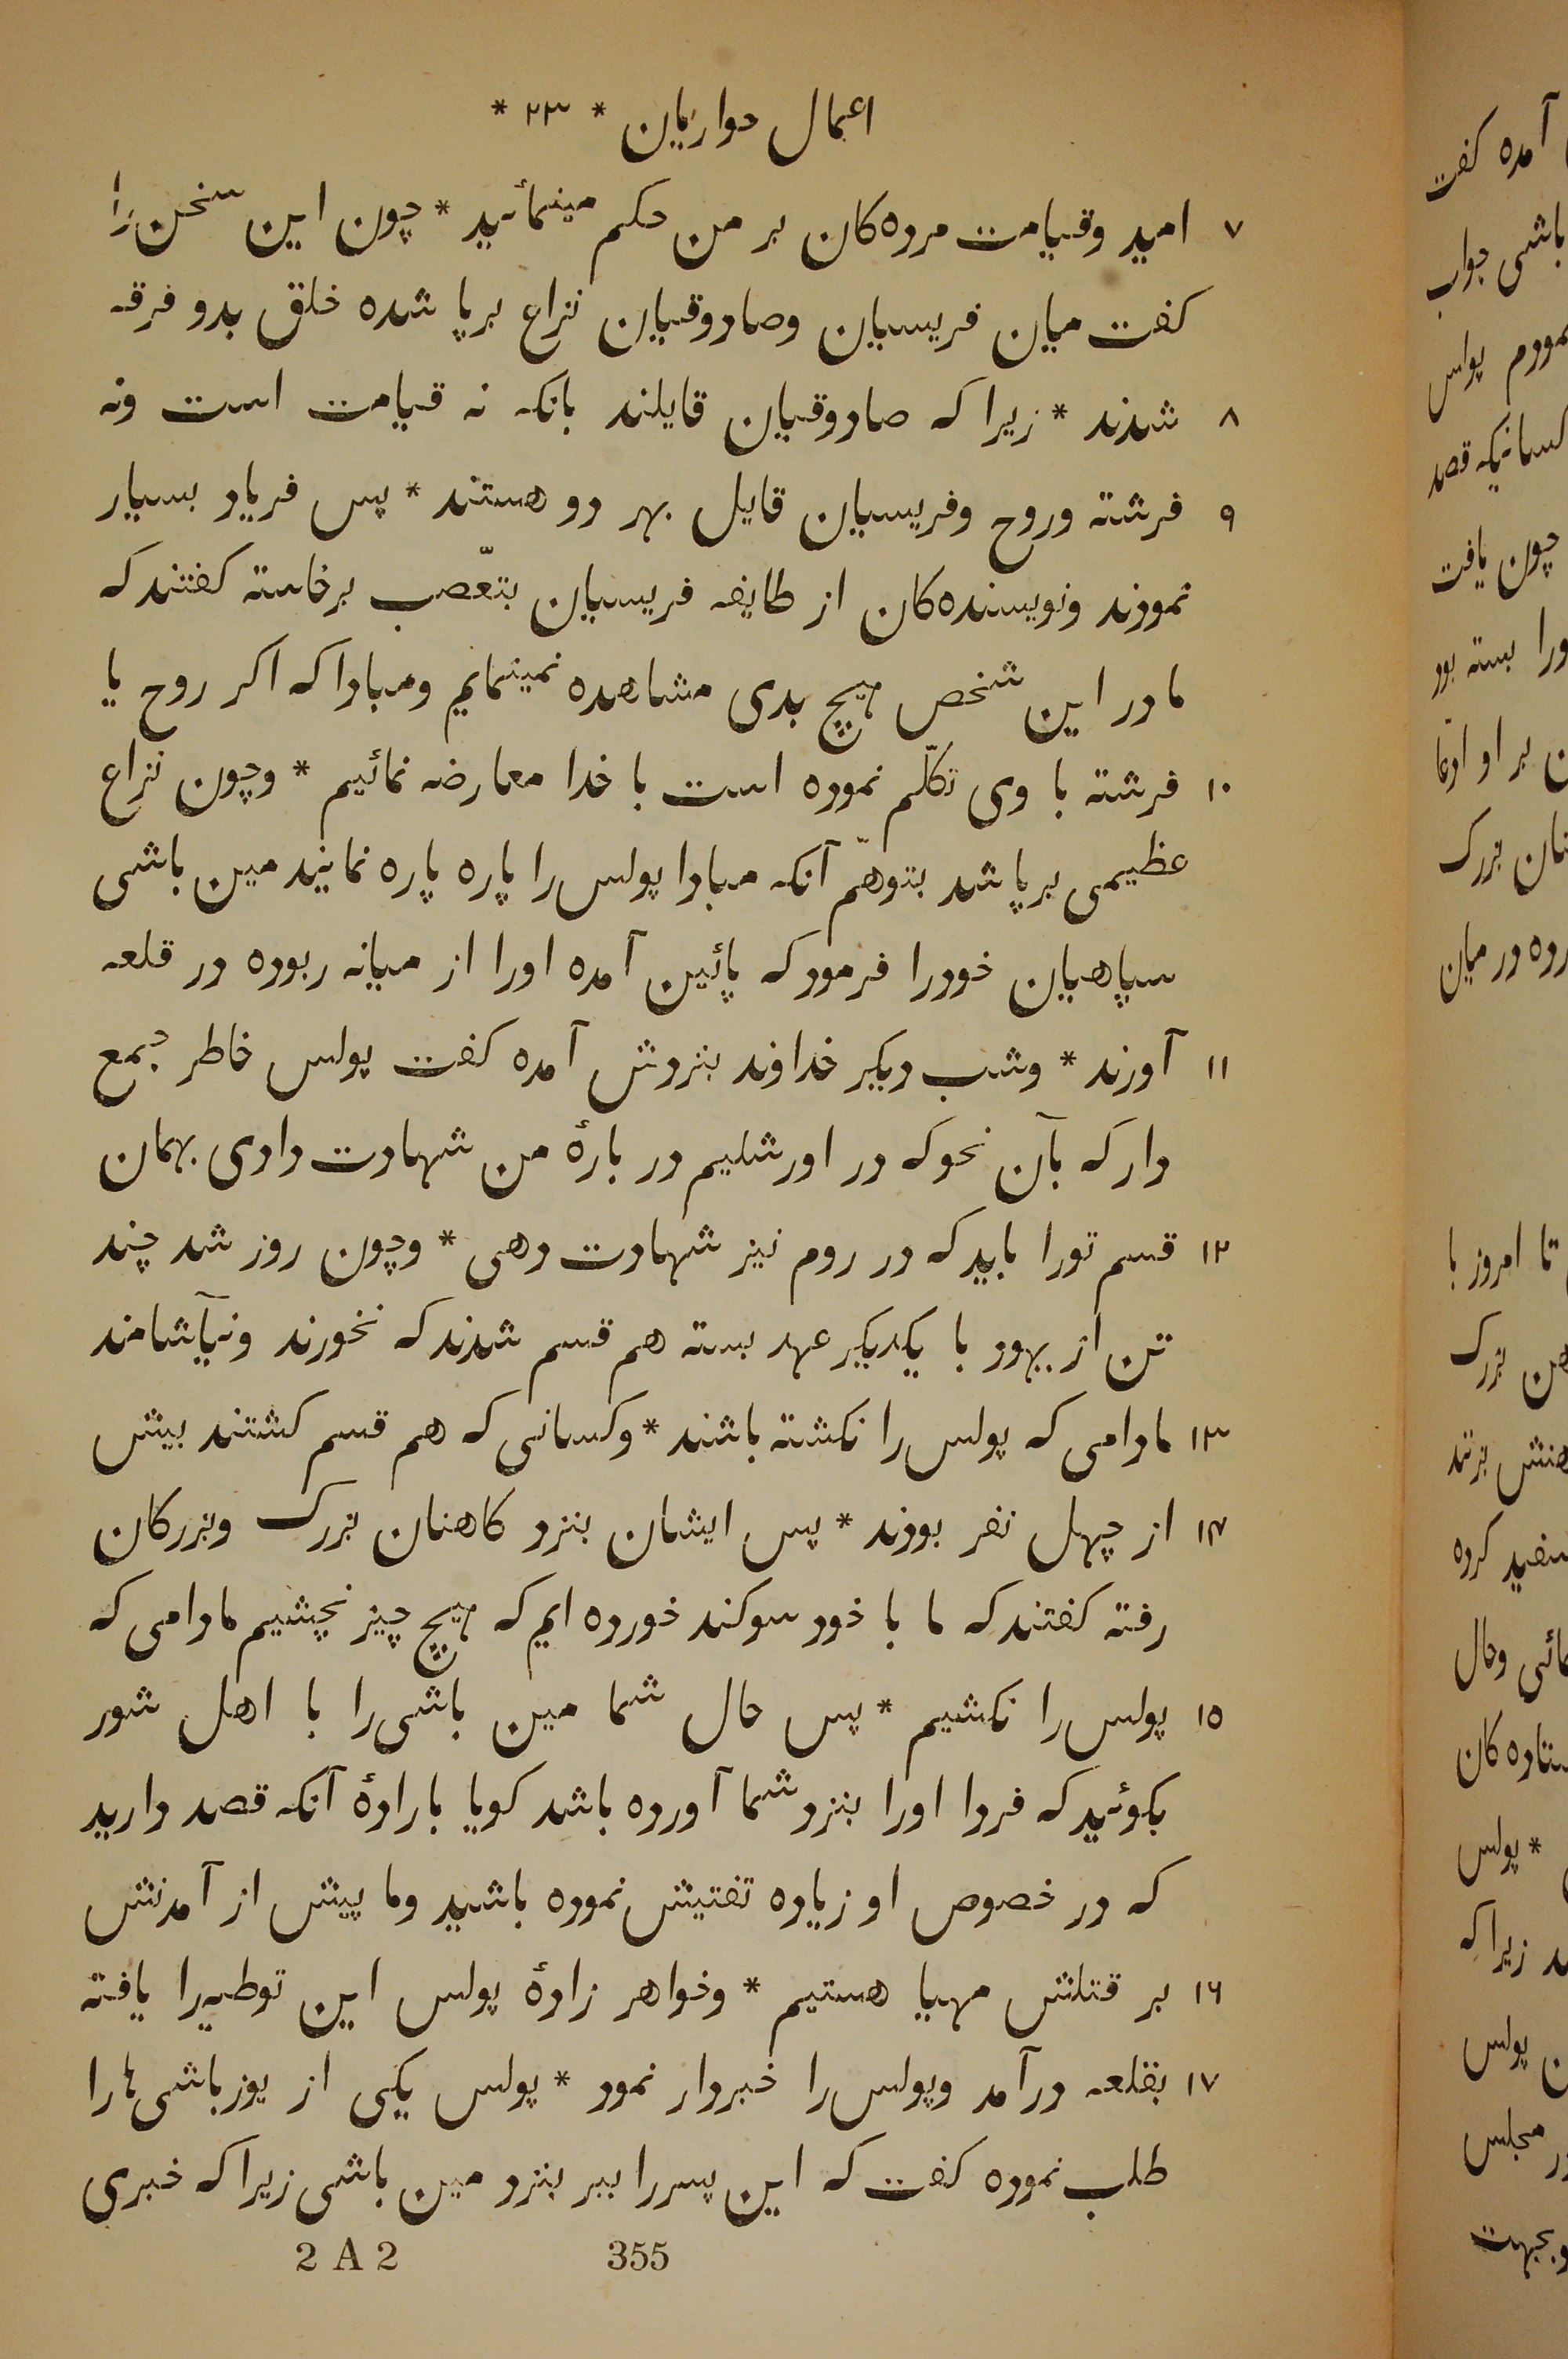 اعمال حواریان * ۲۳ *
۷ امید وقیامت مرده‌کان بر من حکم مینمائید * چون این سخن را
کفت میان فریسیان وصادوقیان نزاع برپا شده خلق بدو فرقه
۸ شدند * زیرا که صادوقیان قایلند بانکه نه قیامت است ونه
۹ فرشته وروح وفریسیان قایل بهر دو هستند * پس فریاد بسیار
نمودند ونویسنده‌کان از طایفه فریسیان بتعّصب برخاسته کفتند که
ما در این شخص هیچ بدی مشاهده نمینمایم ومبادا که اکر روح یا
۱۰ فرشته با وی تکلّم نموده است با خدا معارضه نمائیم * وچون نزاع
عظیمی برپا شد بتوهّم آنکه مبادا پولس را پاره پاره نمایند مین باشی
سپاهیان خودرا فرمود که پائین آمده اورا از میانه ربوده در قلعه
۱۱ آورند * وشب دیکر خداوند بنزدش آمده کفت پولس خاطر جمع
دار که بآن نحو که در اورشلیم در بارهٔ من شهادت دادی بهمان
۱۲ قسم تورا باید که در روم نیز شهادت دهی * وچون روز شد چند
تن از یهود با یکدیکر عهد بسته هم قسم شدند که نخورند ونیآشامند
۱۳ مادامی که پولس را نکشته باشند * وکسانی که هم قسم کشتند بیش
۱۴ از چهل نفر بودند * پس ایشان بنزد کاهنان بزرک وبزرکان
رفته کفتند که ما با خود سوکند خورده ایم که هیچ چیز نچشیم مادامی که
۱۵ پولس را نکشیم * پس حال شما مین باشی را با اهل شور
بکوئید که فردا اورا بنزد شما آورده باشد کویا بارادهٔ آنکه قصد دارید
که در خصوص او زیاده تفتیش نموده باشید وما پیش از آمدنش
۱۶ بر قتلش مهیا هستیم * وخواهر زادهٔ پولس این توطیه‌را یافته
۱۷ بقلعه درآمد وپولس را خبردار نمود * پولس یکی از یوزباشی‌ها را
طلب نموده کفت که این پسررا ببر بنزد مین باشی زیرا که خبری
2 A 2 355
آمده کفت
باشی جواب
پولس
قصد
چون یافت
بسته بود
بر او
بزرک
در میان
تا امروز با
بزرک
کرده
وحال
* پولس
زیرا که
پولس
مجلس